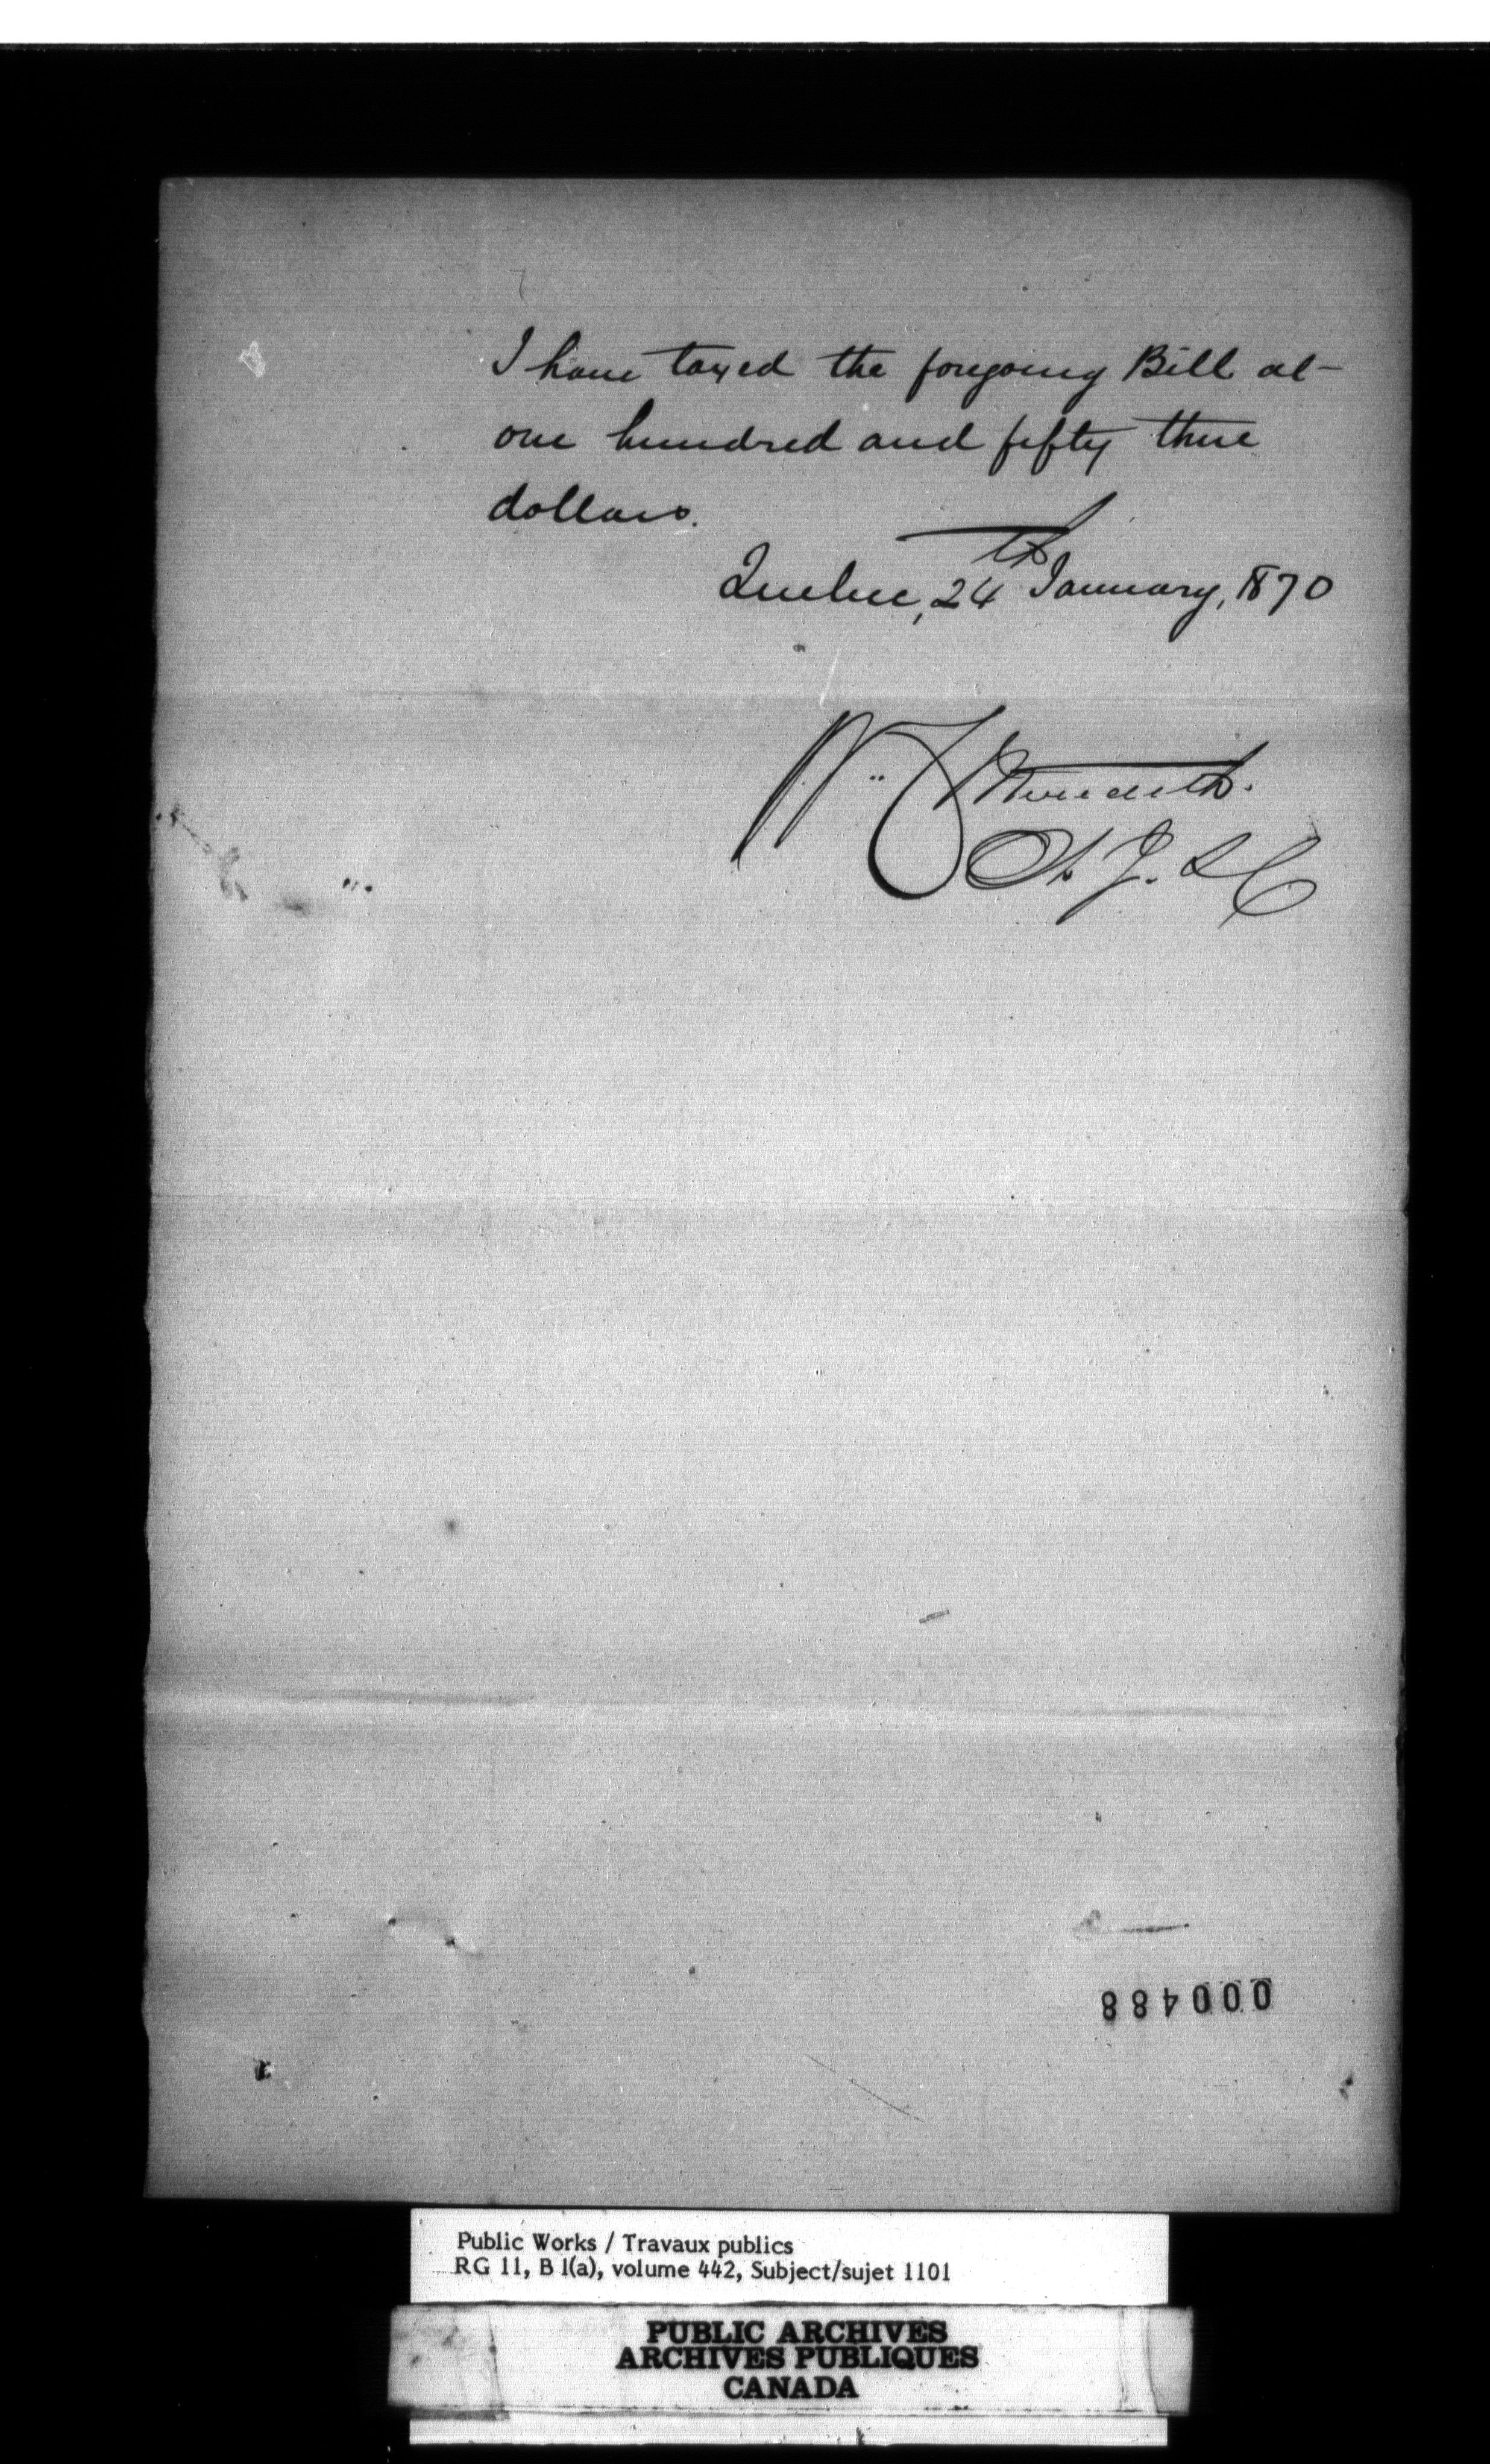 I have taxed the foregoing Bill at
one hundred and fifty three
dollars.
Quebec, 24th January, 1870
Wm. C Meredith.
Ch. J. S C
000488
Public Works / Travaux publics
RG 11, B 1(a), volume 442, Subject/sujet 1101
PUBLIC ARCHIVES
ARCHIVES PUBLIQUES
CANADA